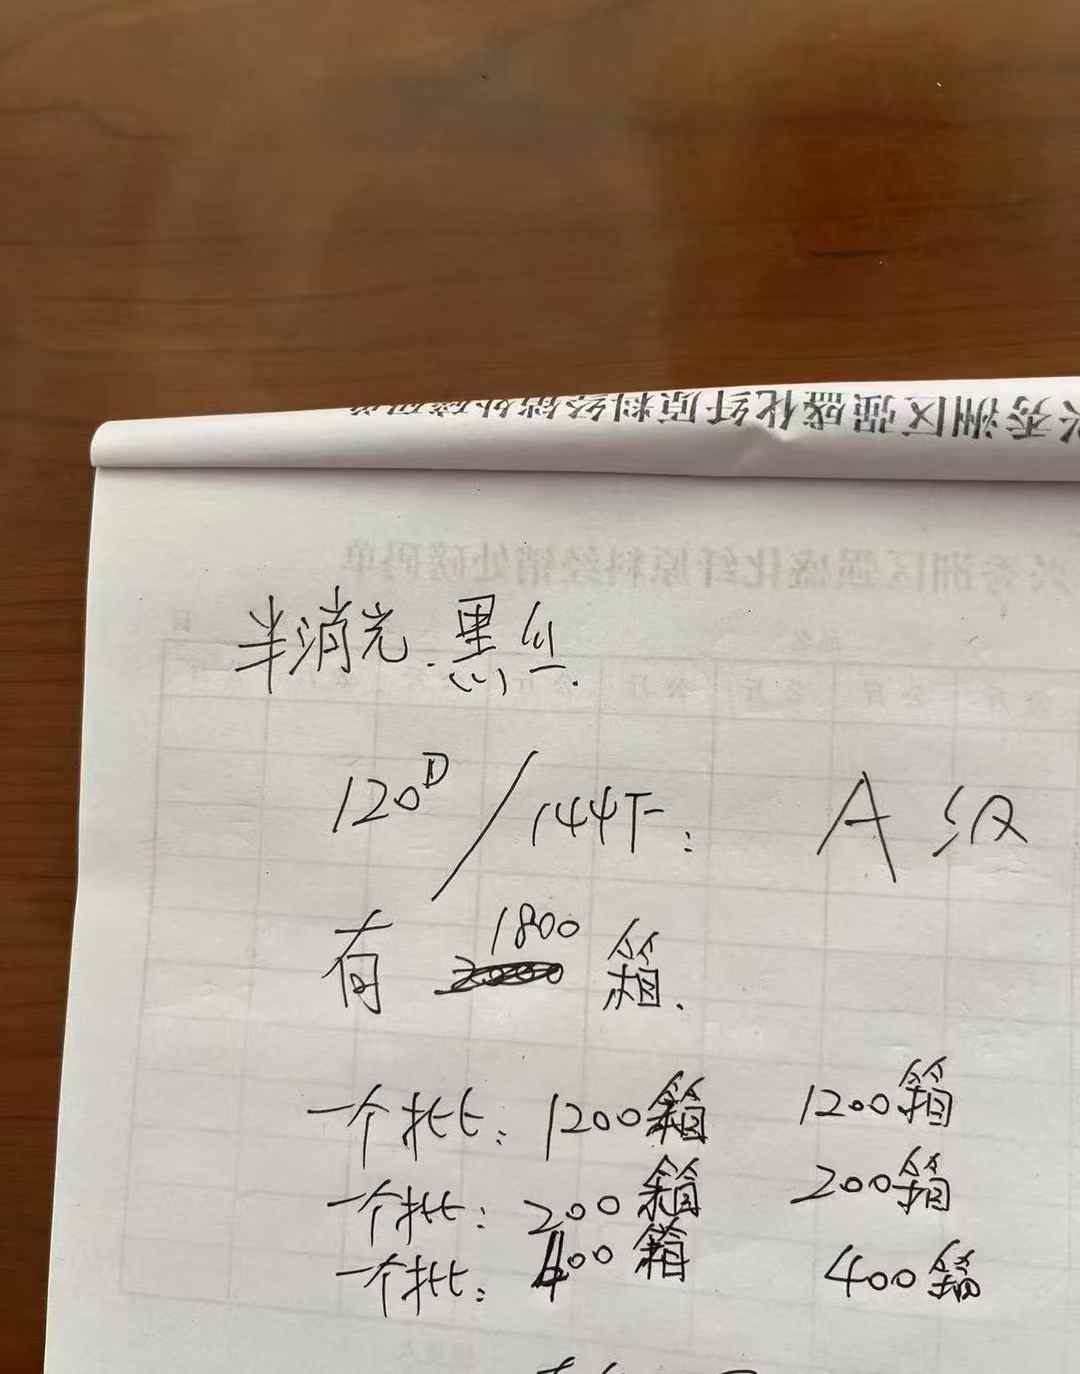 兴秀洲区强盛化纤原料经销处磅码单
兴秀洲区强盛化纤原料经销处磅码单
半消光.黑丝.
120D/144F: A级
有 1800 箱.
一个批: 1200箱 1200箱
一个批: 200箱 200箱
一个批: 400箱 400箱